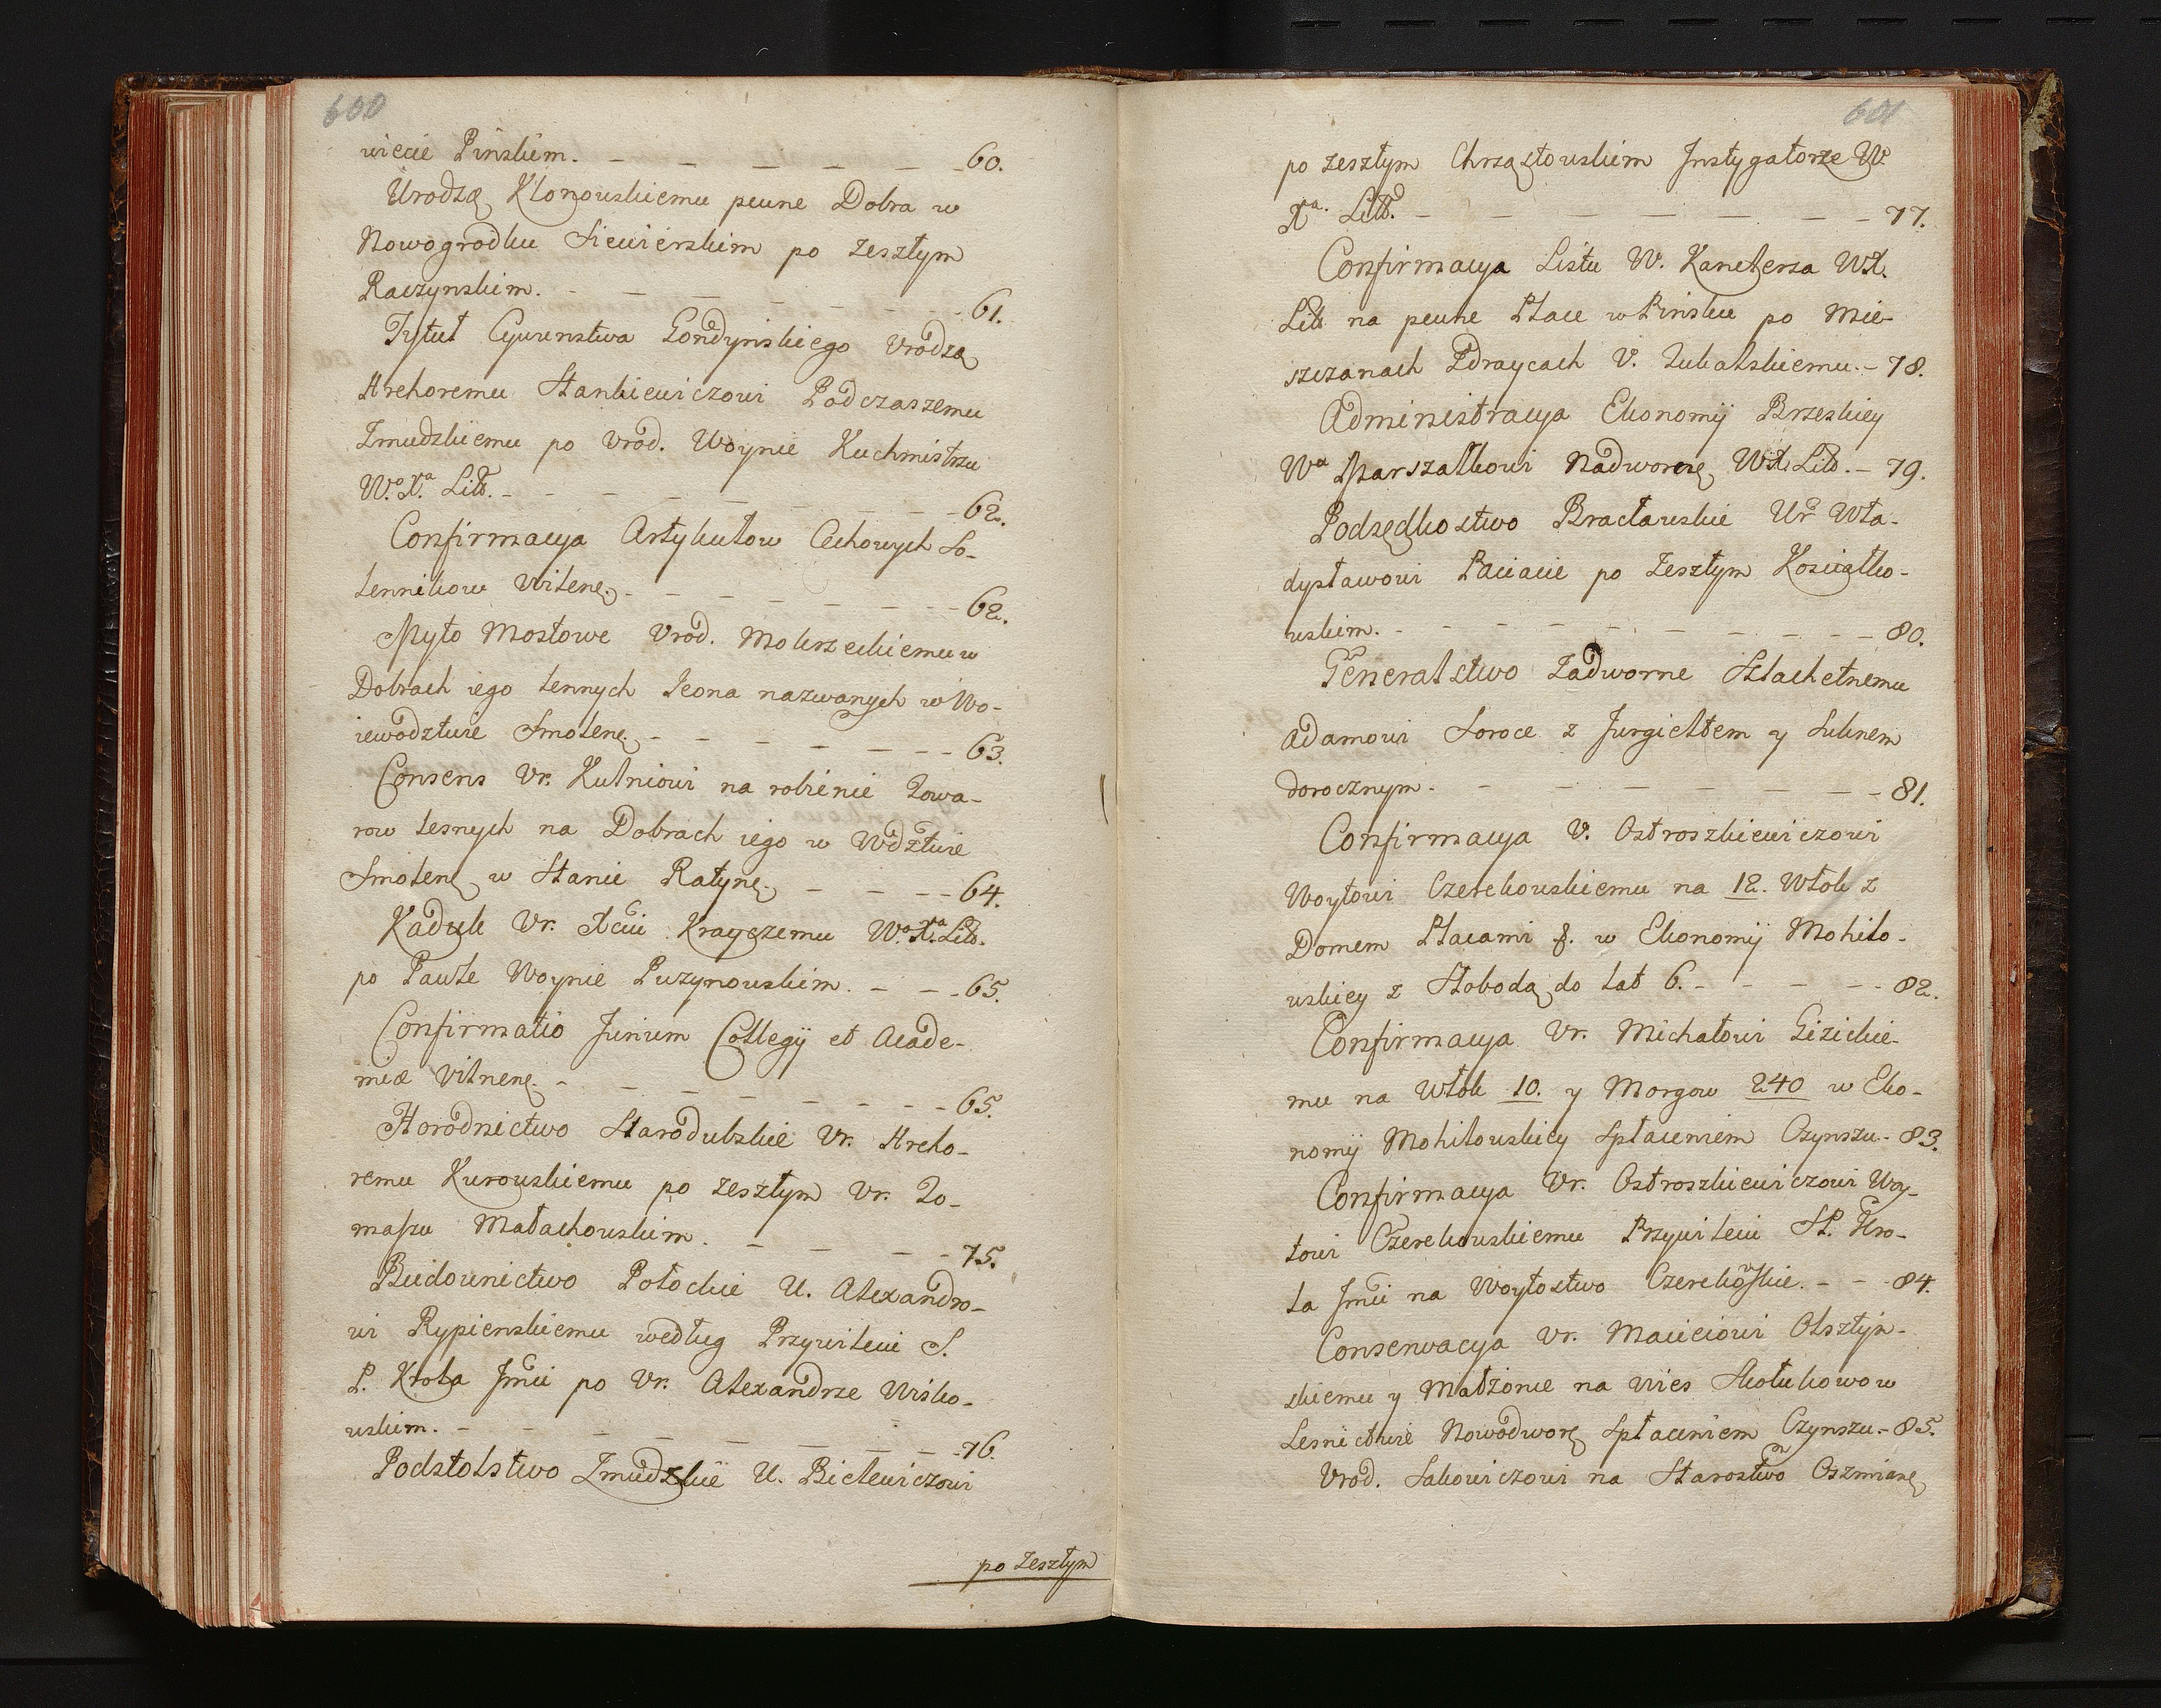 600
wiecie Pinskim. - - - - - - 60.
Urodzę Klonowskiemu pewne Dobra w
Nowogrodku Siewierskim po zeszłym
Raczynskim. - - - - - - - 61.
Tytuł Cywunstwa Gondynskiego Vrodzę
Hrehoremu Stankiewiczowi Podczaszemu
Zmudzkiemu po Vrod. Woynie Kuchmistrzu
W.º X.ª Litt. - - - - - - - 62.
Confirmacya Artykułow Cechowych So-
lennikow Wilenę. - - - - - - - 62.
Myto Mostowe Vrod. Mokrzeckiemu w
Dobrach iego lennych Jeona nazwanych w Wo-
iewodztwie Smolenę - - - - - - - 63.
Consens Vr. Kulniowi na robienie Towa-
row lesnych na Dobrach iego w Wdztwie
Smolenę w Stanie Ratynę. - - - - 64.
Kaduk Vr. Xciu Krayczemu W.º X.ª Litt.
po Pawle Woynie Puzynowskim. - - - 65.
Confirmatio Jurium Collegij et Acade-
miæ Vilnenę. - - - - - - - 65.
Horodnictwo Starodubskie Vr. Hreho-
remu Kurowskiemu po zeszłym Vr. To-
maszu Małachowskim. - - - - 75.
Budownictwo Połockie U. Alexandro-
wi Rypienskiemu według Przywileiu S.
P. Krola Jmci po Vr. Alexandrze Wisko-
wskim. - - - - - - - - 76.
Podstolstwo Zmudzkie U. Bielewiczowi
po zeszłym
601
po zeszłym Chrząstowskim Instygatorze W.
Xª. Litt. - - - - - - - - 77.
Confirmacya Listu W. Kanclerza WX.
Litt na pewne Place w Pinsku po Mie-
szczanach Zdraycach V. Zubalskiemu. - 78.
Administracya Ekonomij Brzeskiey
Wª Marszałkowi Nadwornę WX. Litt. - 79.
Podsędkostwo Bracławskie Ur Wła-
dysławowi Paciacie po Zeszłym Kosciałko-
wskim. - - - - - - - - - 80.
Generalstwo Zadworne Szlachetnemu
Adamowi Soroce z Jurgieltem y Suknem
dorocznym. - - - - - - - - 81.
Confirmacya V. Ostroszkiewiczowi
Woytowi Czerekowskiemu na 12. Włok z
Domem Placami 8. w Ekonomij Mohilo-
wskiey z Słobodą do lat 6. - - - - - 82.
Confirmacya Vr. Michałowi Gizickie-
mu na Włok 10. y Morgow 240 w Eko-
nomij Mohilowskiey spłaceniem Czynszu. - 83.
Confirmacya Vr. Ostroszkiewiczowi Woy-
towi Czerekowskiemu Przywileiu SP. Kro-
la Jmci na Woytostwo Czerekowskie. - - - 84.
Conserwacya Vr. Macieiowi Olsztyn-
skiemu y Małżonce na wies Skołukowo w
Lesnictwie Nowodworę spłaceniem Czynszu. - 85.
Vrod. Sakowiczowi na Starostwo Oszmianę